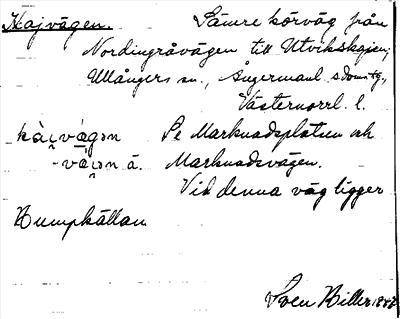 Kajvägen. Sämre körväg från
Nordingråvägen till Utvikskajen,
Ullångers sn., Ångermanl. s. domsg.,
Västernorrl. l.
kàjvǻgən Se Marknadsplatsen och
Marknadsvägen.
Vid denna väg ligger
Bumpkällan
Sven Biller